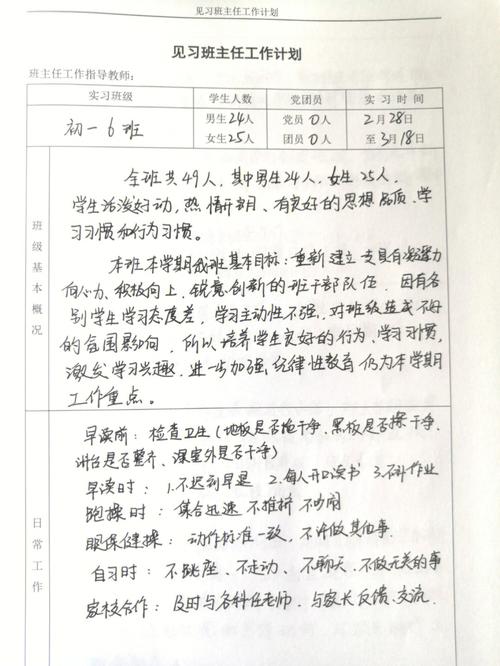 见习班主任工作计划
见习班主任工作计划
班主任工作指导教师：
实习班级 学生人数 党团员 实习时间
初一6班 男生24人 党员0人 2月28日
女生25人 团员0人 至3月18日
班级基本概况
全班共49人，其中男生24人，女生25人，
学生活泼好动，热情开朗、有良好的思想品质、学
习习惯和行为习惯。
本班本学期我班基本目标：重新建立一支具有凝聚力
向心力、积极向上、锐意创新的班干部队伍，因有各
别学生学习态度差，学习主动性不强，对班级造成不好
的氛围影响，所以培养学生良好的行为、学习习惯，
激发学习兴趣，进一步加强纪律性教育仍为本学期
工作重点。
日常工作
早读前：检查卫生（地板是否拖干净、黑板是否擦干净、
讲台是否整齐、课室外是否干净）
早读时：1.不迟到早退 2.每人开口读书 3.不补作业
跑操时：集合迅速 不推挤 不吵闹
眼保健操：动作标准一致，不许做其他事.
自习时：不跳座、不走动、不聊天、不做无关的事
家校合作：及时与各科任老师、与家长反馈、交流.